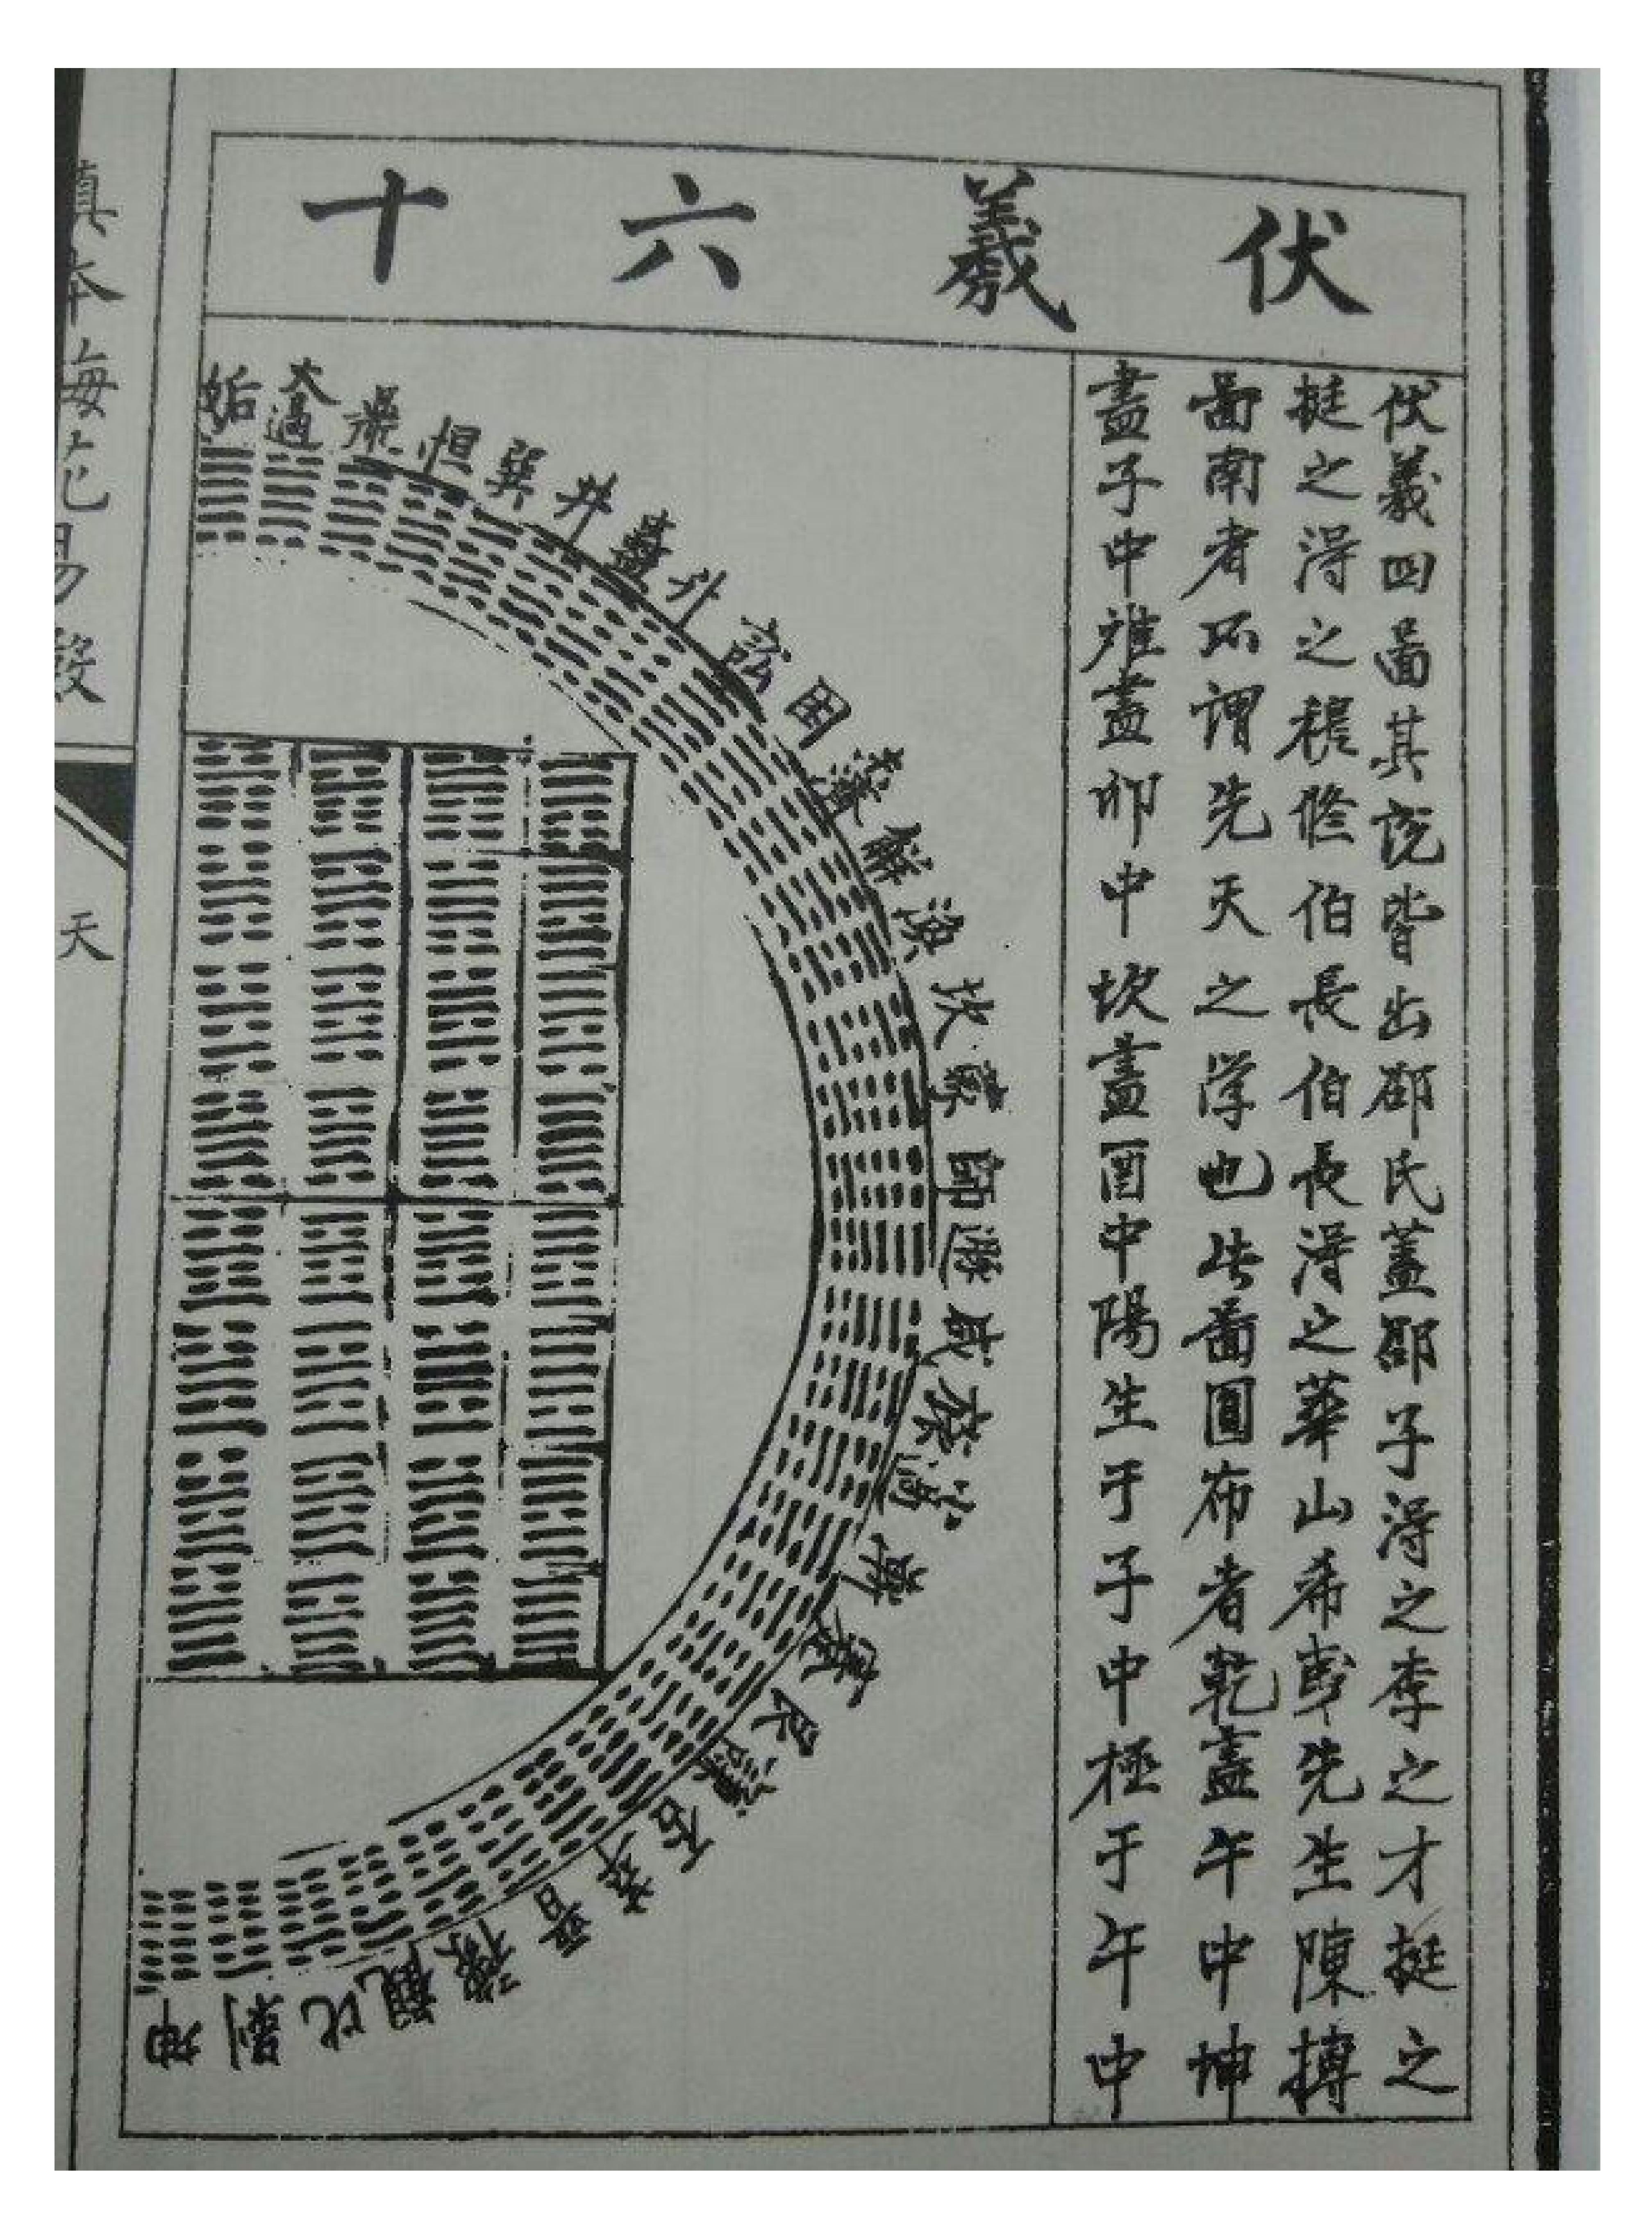 伏羲六十
伏羲四啚其說皆出邵氏蓋邵子得之李之才挺之
挺之得之穆修伯長伯長得之華山希夷先生陳摶
啚南者所謂先天之學也此啚圓布者乾盡午中坤
盡子中離盡卯中坎盡酉中陽生于子中極于午中
姤
大過
鼎
恒
巽
井
蠱
升
訟
困
未濟
解
渙
坎
蒙
師
遯
咸
旅
小過
漸
蹇
艮
謙
否
萃
晉
豫
觀
比
剝
坤
真本梅花易數
天